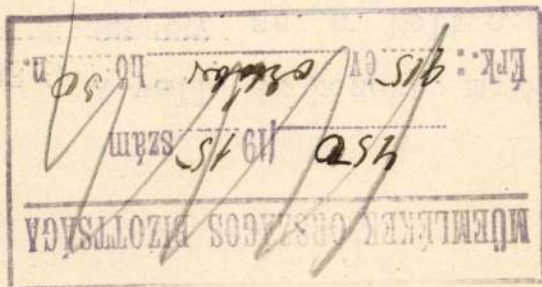 MŰEMLÉKEK ORSZAGOS BIZOTTSÁGA
450 /19 15 szám
Érk.: 915 év október hó 30 n.